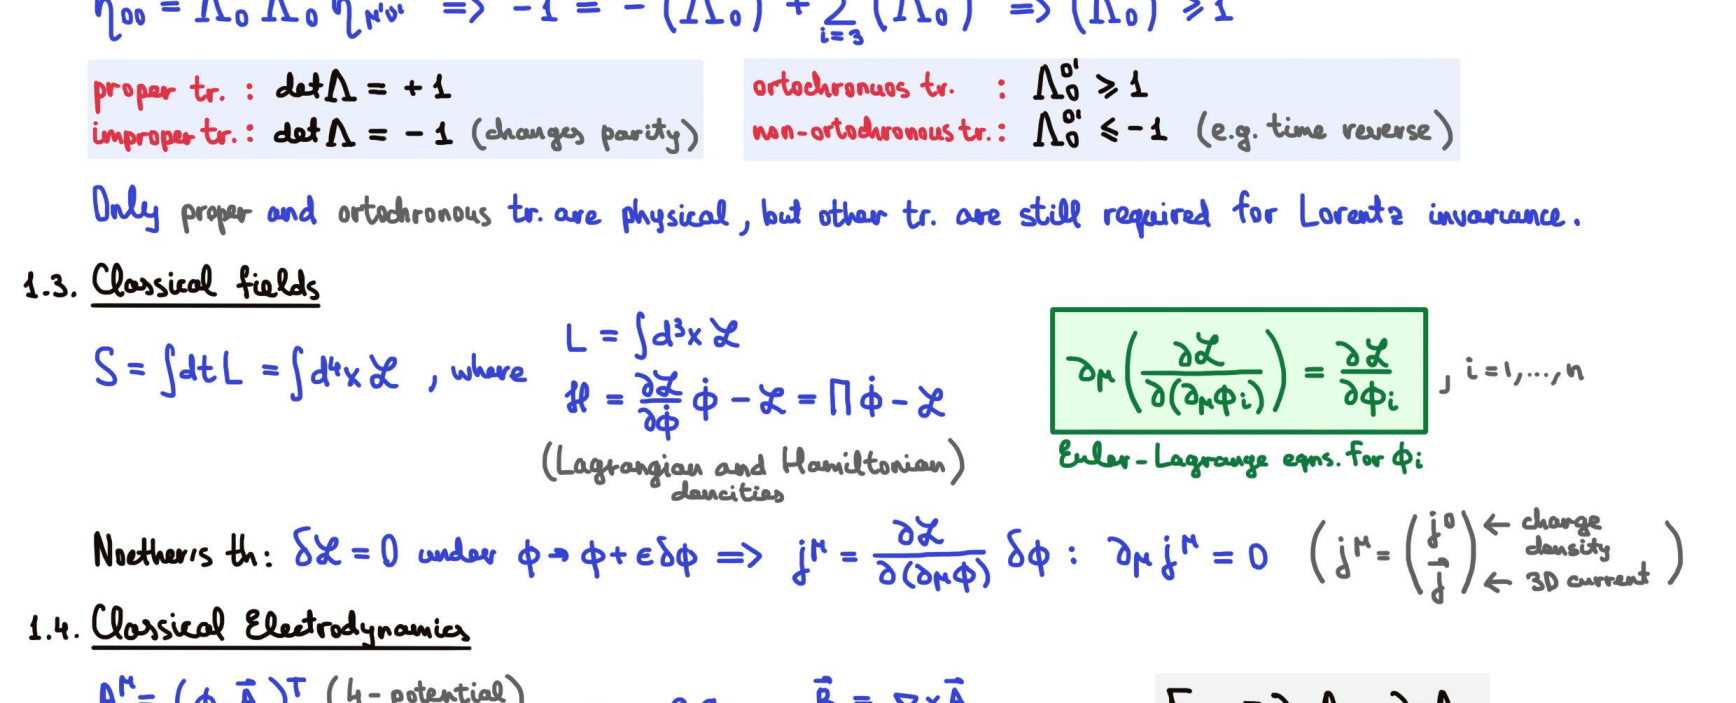 η₀₀ = Λ₀ Λ₀ η_μ'ν' => -1 = - (Λ₀) + Σ_{i=3} (Λ₀) => (Λ₀) ⩾ 1
proper tr. : det Λ = + 1
improper tr. : det Λ = - 1 (changes parity)
ortochronuos tr. : Λ₀^0' ⩾ 1
non-ortochronous tr. : Λ₀^0' ⩽ -1 (e.g. time reverse)
Only proper and ortochronous tr. are physical, but other tr. are still required for Lorentz invariance.
1.3. Classical fields
S = ∫dt L = ∫d⁴x ℒ , where
L = ∫d³x ℒ
ℋ = ∂ℒ/∂φ̇ φ̇ - ℒ = Π φ̇ - ℒ
(Lagrangian and Hamiltonian)
dencities
∂_μ (∂ℒ/∂(∂_μφ_i)) = ∂ℒ/∂φ_i , i=1,...,n
Euler-Lagrange eqns. for φ_i
Noether's th: δℒ = 0 under φ → φ + εδφ => j^μ = ∂ℒ/∂(∂_μφ) δφ : ∂_μ j^μ = 0 (j^μ = (j⁰ j⃗) ← charge density ← 3D current)
1.4. Classical Electrodynamics
A^μ = (φ, A⃗)^T (4-potential)
B⃗ = ∇×A⃗